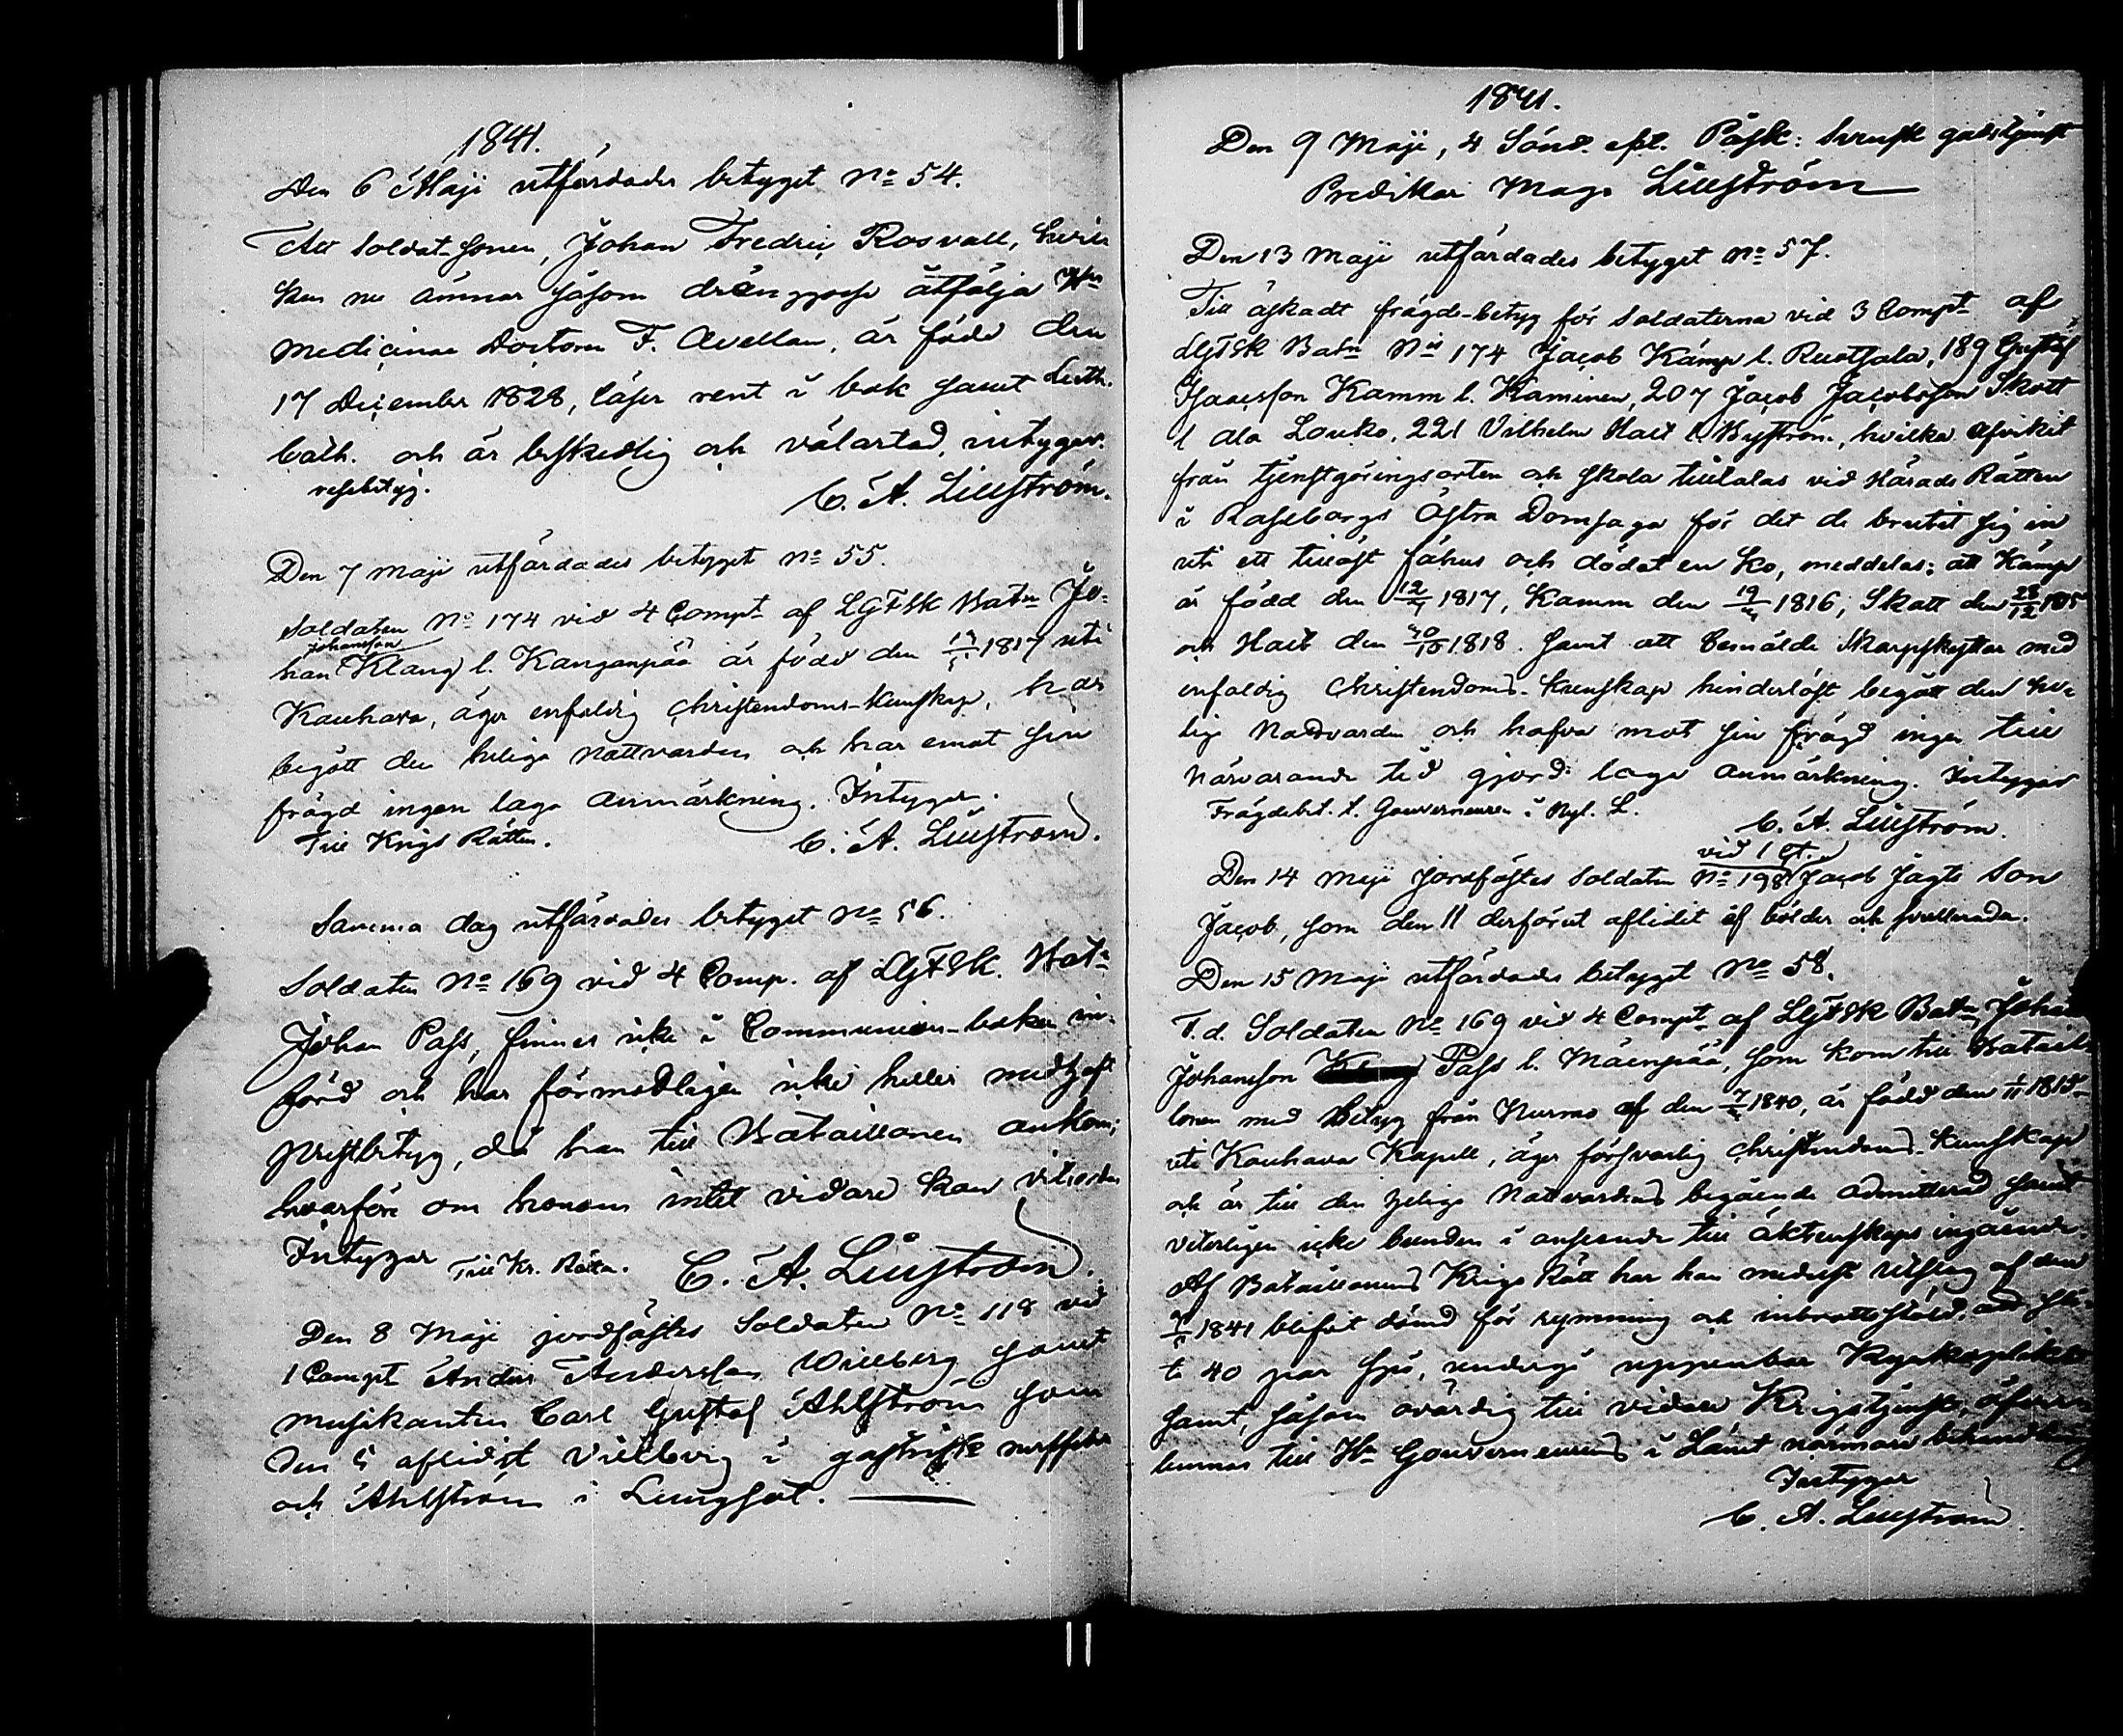 1841.
Den 6 Maji utfärdades betyget No 54.
Att Soldat-Sonen, Johan Fredric Rosvall, hvil-
ken nu ämnar såsom dränggosse åtfölja Hn
Medicinae Doctorn F. Avellan, är född den
17 December 1828, läser rent i bok samt Luth.
Cath. och är beskedlig och välartad, intygar.
resebetyg. C. A. Liliström.
Den 7 Maji utfärdades betyget No 55.
Soldaten No 174 vid 4 Compt af LGFSk Batn Jo-
Johansson
han Klang l. Kanganpää är född den 1817 uti
Kauhava, äger enfaldig Christendoms-kunskap, har
begått den heliga Nattvarden och har emot sin
frägd ingen laga anmärkning. Intygar.
Till Krigs Rätten. C. A. Liliström.
Samma dag utfärdades betyget No 56.
Soldaten No 169 vid 4 Comp. af LGFSk. Batn
Johan Pass, finnes icke i Communion-boken in-
förd och har förmodligen icke heller medhaft
Prestbetyg, då han till Bataillonen ankom;
hvarföre om honom intet vidare kan vitsordas
Intygar Till Kr. Rätten. C. A. Liliström.
Den 8 Maji jordfästes Soldaten No 118 vid
1 Compt Anders Andersson Willberg samt
Musikanten Carl Gustaf Ahlström som
den 5 aflidit Villberg i gastrisk nerffeber
och Ahlström i Lungsot.
1841.
Den 9 Maji, 4 Sönd. eft. Påsk: Svensk gudstjenst
Predikar Mag. Liliström
Den 13 Maji utfärdades betyget No 57.
Till äskadt frägde-betyg för Soldaterna vid 3 Compt af
LGFSk Batn No 174 Jacob Kämp l. Ruotsala, 189 Gustaf
Isaacsson Kamm l. Kaminen, 207 Jacob Jacobsson Skatt
l Ala Louko, 221 Vilhelm Hait l Byström, hvilka afvikit
från tjenstgöringsorten och skola tilltalas vid Härads Rätten
i Raseborgs Östra Domsaga för det de brutit sig in
uti ett tillåst fähus och dödat en Ko, meddelas: att Kämp
är född den 12/4 1817, Kamm den 19/4 1816, Skatt den 28/12 1815
och Hait den /10 1818. samt att bemälde Skarpskyttar med
enfaldig Christendoms-kunskap hinderlöst begått den he-
liga Nattvarden och hafva mot sin frägd ingen till
närvarande tid gjord laga anmärkning. Intygar
Frägdebet. t. Gouverneuren i Nyl. L. C. A. Liliström.
vid 1 Ct.
Den 14 Maji jordfästes Soldaten No 198 Jacob Jägts Son
Jacob, som den 11 derförut aflidit af bölder och svullnader.
Den 15 Maji utfärdades betyget No 58.
F. d. Soldaten No 169 vid 4 Compt af LGFSk Batn Johan
Johansson Pass l. Mäenpää, som kom till Batail-
lonen med Betyg från Nurmo af den 1840, är född den 1/11 1815
uti Kauhava Kapell, äger försvarlig Christendoms-kunskap
och är till den Heliga Nattvardens begående admitterad samt
veterligen icke bunden i anseende till äktenskaps ingående.
Af Bataillonens Krigs Rätt har han medelst Utslag af den
1841 blifvit dömd för rymning och inbrottsstöld, att
40 par spö, undergå uppenbar Kyrkoplikt
samt, såsom ovärdig till vidare Krigstjenst, öfver-
lemnas till Hn Gouverneurens i Länet närmare behandling
Intygar
C. A. Liliström